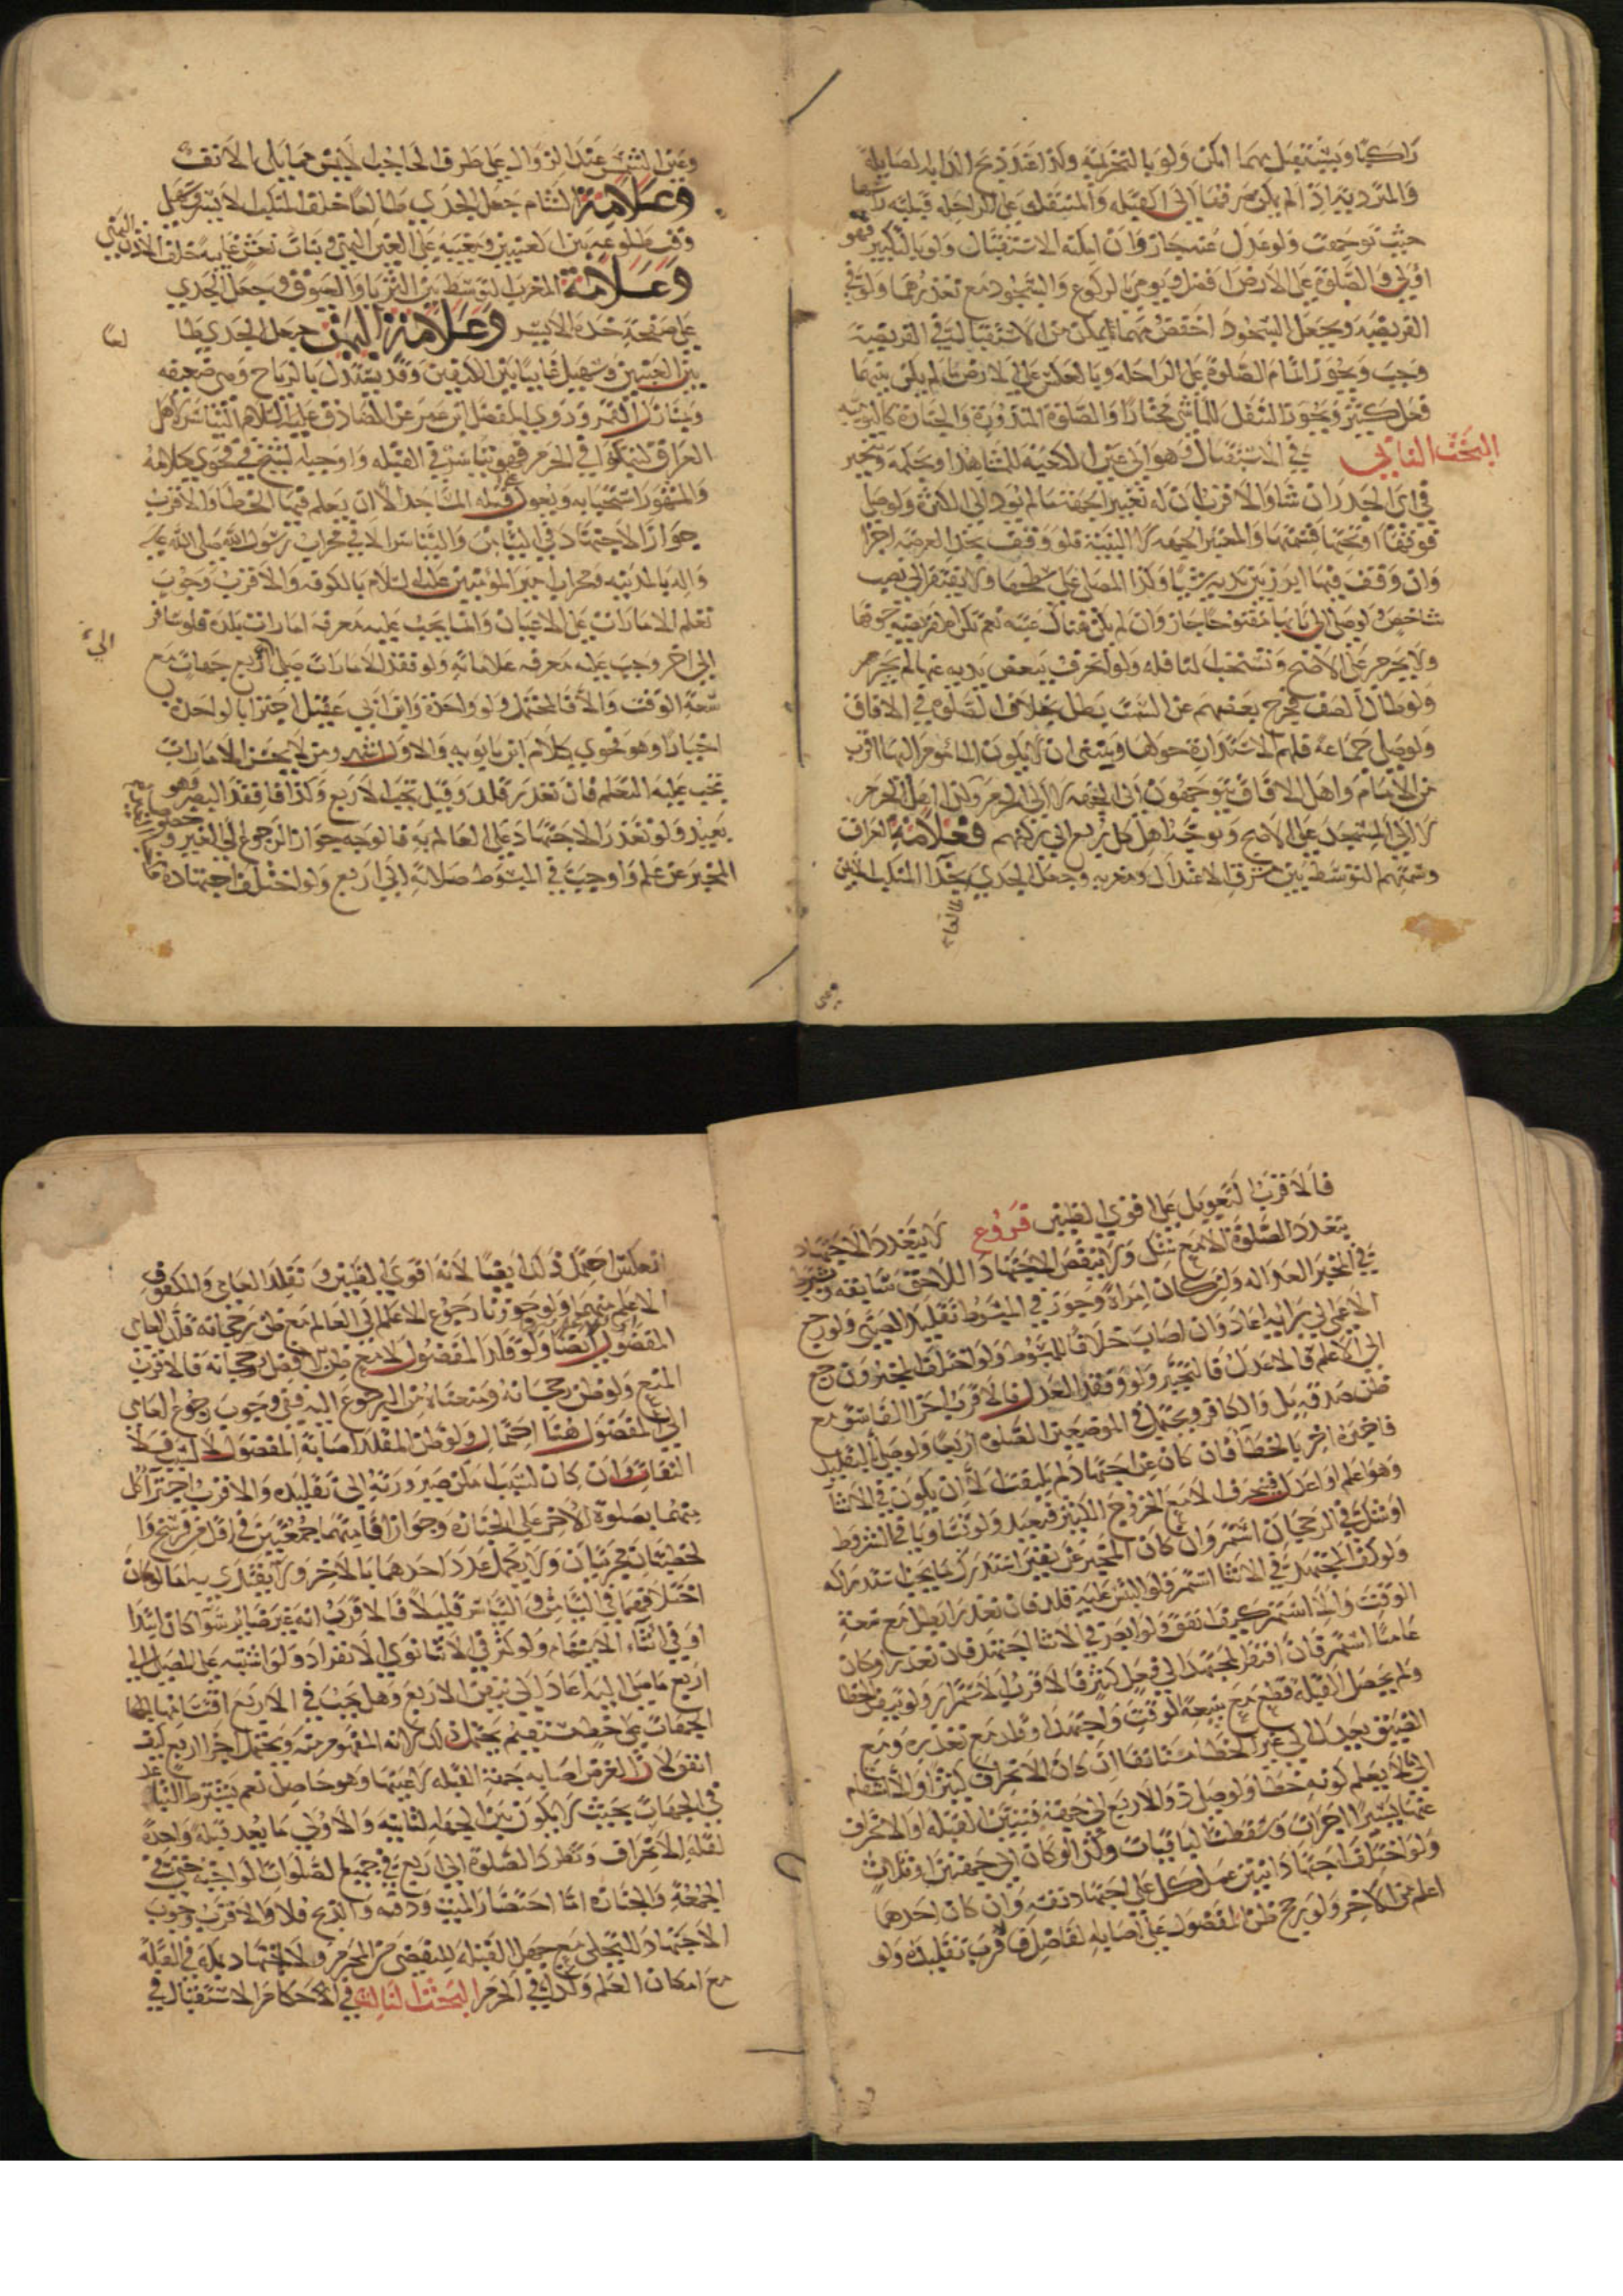 راكبا ويستقبل مهما امكن ولو بالتحريمة وكذا عند ذبح الدابة الصايلة
والمتردية اذا لم يمكن صرفها الى القبلة والمتنفل على الراحلة قبلته راسها
حيث توجهت ولو عدل عنه جاز وان امكنه الاستقبال ولو بالتكبير فهو
اولى والصلوة على الارض افضل ويومي بالركوع والسجود مع تعذرهما ولو في
الفريضة ويجعل السجود اخفض ومهما امكن من الاستقبال في الفريضة
وجب ويجوز اتمام الصلوة على الراحلة وبالعكس على الارض ما لم يكن بينهما
فعل كثير ويجوز التنفل للماشي مختارا والصلوة المنذورة والجنازة كاليومية
البحث الثاني في الاستقبال وهو الى عين الكعبة للمشاهد او بحكمه ويتخير
في اي الجدران شاء والاقرب ان له تغيير الجهة ما لم يؤد الى الكثرة ولو صلى
فوقها او تحتها قثمتها والمعتبر الجهة لا البنية فلو وقف بحذا العرصة اجزا
وان وقف فيها ابرز بين يديه شيا وكذا المصلي على سطحها ولا يفتقر الى نصب
شاخص ولو صلى الى بابها مفتوحا جاز وان لم يكن هناك عتبة نعم تكره الفريضة جوفها
ولا يحرم على الاصح وتستحب النافلة ولو انحرف ببعض بدنه عنها لم يجز
ولو طال الصف فخرج بعضهم عن السمت بطل بخلاف الصلوة في الافاق
ولو صلى جماعة فلهم الاستدارة حولها وينبغي ان لا يكون الماموم اليها اقرب
من الامام واهل الافاق يتوجهون الى الجهة لا الى الحرم وان اهل الحرم
لا الى المسجد على الاصح ويتوجه اهل كل ربع الى ركنهم فعلامة العراق
وسمتهم التوسط بين مشرق الاعتدال ومغربه وجعل الجدي بحذا المنكب الايمن
طالعا
وعين الشمس عند الزوال على طرف الحاجب الايمن مما يلي الانف
وعلامة الشام جعل الجدي طالعا خلف الكتف الايسر وسهيل
وقت طلوعه بين العينين ومغيبه على العين اليمنى وبنات نعش غايبة خلف الاذن اليمنى
وعلامة المغرب التوسط بين الثريا والعيوق وجعل الجدي
على صفحة خده الايسر وعلامة اليمن جعل الجدي طا
لعا
بين العينين وسهيل غايبا بين الكتفين وقد يستدل بالرياح وهي ضعيفة
وبمنازل القمر وروى المفضل ابن عمر عن الصادق عليه السلام التياسر لاهل
العراق ليتنكبوا في الحرم فهو تياسر في القبلة واوجبه الشيخ في فحوى كلامه
والمشهور استحبابه ويعول على قبلة المساجد الا ان يعلم فيها الخطا والاقرب
جواز الاجتهاد في التيامن والتياسر الا في محراب رسول الله صلى الله عليه
واله بالمدينة ومحراب امير المؤمنين عليه السلام بالكوفة والاقرب وجوب
تعلم الامارات على الاعيان وانما يجب عليه معرفة امارات بلده فلو سافر
الى اخر وجب عليه معرفة علاماته ولو فقد الامارات صلى الى اربع جهات مع
سعة الوقت والا فالمحتمل ولو واحدة وابن ابي عقيل اجتزا بالواحدة
اختيارا وهو فحوى كلام ابن بابويه والاول اشهر ومن لا يحسن الامارات
يجب عليه التعلم فان تعذر قلد وقيل تجب الاربع وكذا فاقد البصر وهو
بعيد ولو تعذر الاجتهاد على العالم به فالوجه جواز الرجوع الى الغير
المخبر عن علم واوجب في المبسوط صلاته الى اربع ولو اختلف اجتهادهما
فالاقرب التعويل على اقوى الظنين فروع لا يتعدد الاجتهاد
بتعدد الصلوة الا مع شك ولا ينقض الاجتهاد اللاحق سابقه ويشترط
في المخبر العدالة وان كان امراة وجوز في المبسوط تقليد الصبي ولو رجع
الاعمى الى رايه اعاد وان اصاب خلافا للمبسوط ولو اختلف المخبرون رجع
الى الاعلم فالاعدل فالتخيير ولو فقد العدل فالاقرب اجزا الفاسق مع
ظن صدقه بل والكافر ويحتمل في الموضعين الصلوة اربعا ولو صلى بالتقليد
فاخبره اخر بالخطا فان كان عن اجتهاد لم يلتفت الا ان يكون في الاثنا
وهو اعلم او اعدل فينحرف الا مع الخروج الكثير فيعيد ولو تساويا في الشروط
او شك في الرجحان استمر وان كان المخبر عن يقين استدرك ما يجب استدراكه
ولو كف المجتهد في الاثنا استمر فلو التبس عليه قلد فان تعذر ابطل مع سعة
الوقت والا استمر كيف اتفق ولو ابصر في الاثنا اجتهد فان تعذر او كان
عاميا استمر فان افتقر المجتهد الى فعل كثير فالاقرب الاستمرار ولو تيقن الخطا
ولم يحصل القبلة قطع مع سعة الوقت واجتهد او قلد مع تعذره ومع
الضيق يعيد الى غير الخطا مستانفا ان كان الانحراف كثيرا والا استقام
الى ما لا يعلم كونه خطا ولو صلى ذو الاربع الى جهة فتبين القبلة او الانحراف
عنها يسيرا اجزات وسقطت الباقيات وكذا لو كان الى جهتين او ثلاث
ولو اختلف اجتهاد اثنين عمل كل على اجتهاد نفسه وان كان احدهما
اعلم من الاخر ولو رجح ظن المفضول على اصابة الفاضل قرب تقليده ولو
انعكس احتمل ذلك ايضا لانه اقوى الظنين وتقلد العامي والمكفوف
الاعلم منهما ولو جوزنا رجوع الاعلم الى العالم مع ظن رجحانه قلد العامي
المفضول ايضا ولو قلد المفضول لا مع ظن الافضل ورجحانه فالاقرب
المنع ولو ظن رجحانه ومنعناه من الرجوع اليه ففي وجوب رجوع العامي
الى المفضول هنا احتمال ولو ظن المقلد اصابة المفضول لا لسبب فلا
التفات وان كان لسبب امكن صيرورته الى تقليده والاقرب اجتزا كل
منهما بصلوة الاخر على الجنازة وجواز اقامتهما جمعتين في اقل من فرسخ وا
لخطبتان تجزيان ولا يكمل عدد احدهما بالاخر ولا يقتدي به اما لو كان
اختلافهما في التيامن والتياسر قليلا فالاقرب انه غير ضاير سوا كان ابتدا
او في اثناء الايتمام ولو كثر في الاثنا نوى الانفراد ولو اشتبه على المصلي الى
اربع ما صلى اليه اعاد الى تيقن الاربع وهل يجب في الاربع اقتسامها
الجهات على خط مستقيم يحتمل ذلك لانه المفهوم منه ويحتمل اجزا اربع كيف
اتفق لان الغرض اصابة جهة القبلة لا عينها وهو حاصل نعم يشترط التباعد
في الجهات بحيث لا يكون بين الجهة الثانية والاولى ما يعد قبلة واحدة
لقلة الانحراف وتطرد الصلوة الى اربع في جميع الصلوات الواجبة حتى في
الجمعة والجنازة اما احتضار الميت ودفنه والذبح فلا والاقرب وجوب
الاجتهاد للتخلي مع جهل القبلة ليتقصى من المحرم ولا اجتهاد بمكة في القبلة
مع امكان العلم وكذا في الحرم البحث الثالث في احكام الاستقبال في